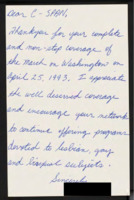 Dear C-SPAN,
Thank you for your complete
and non-stop coverage of
the March on Washington on
April 25, 1993. I appreciate
the well deserved coverage
and encourage your network
to continue offering programs
devoted to lesbian, gay
and bisexual subjects.
Sincerely